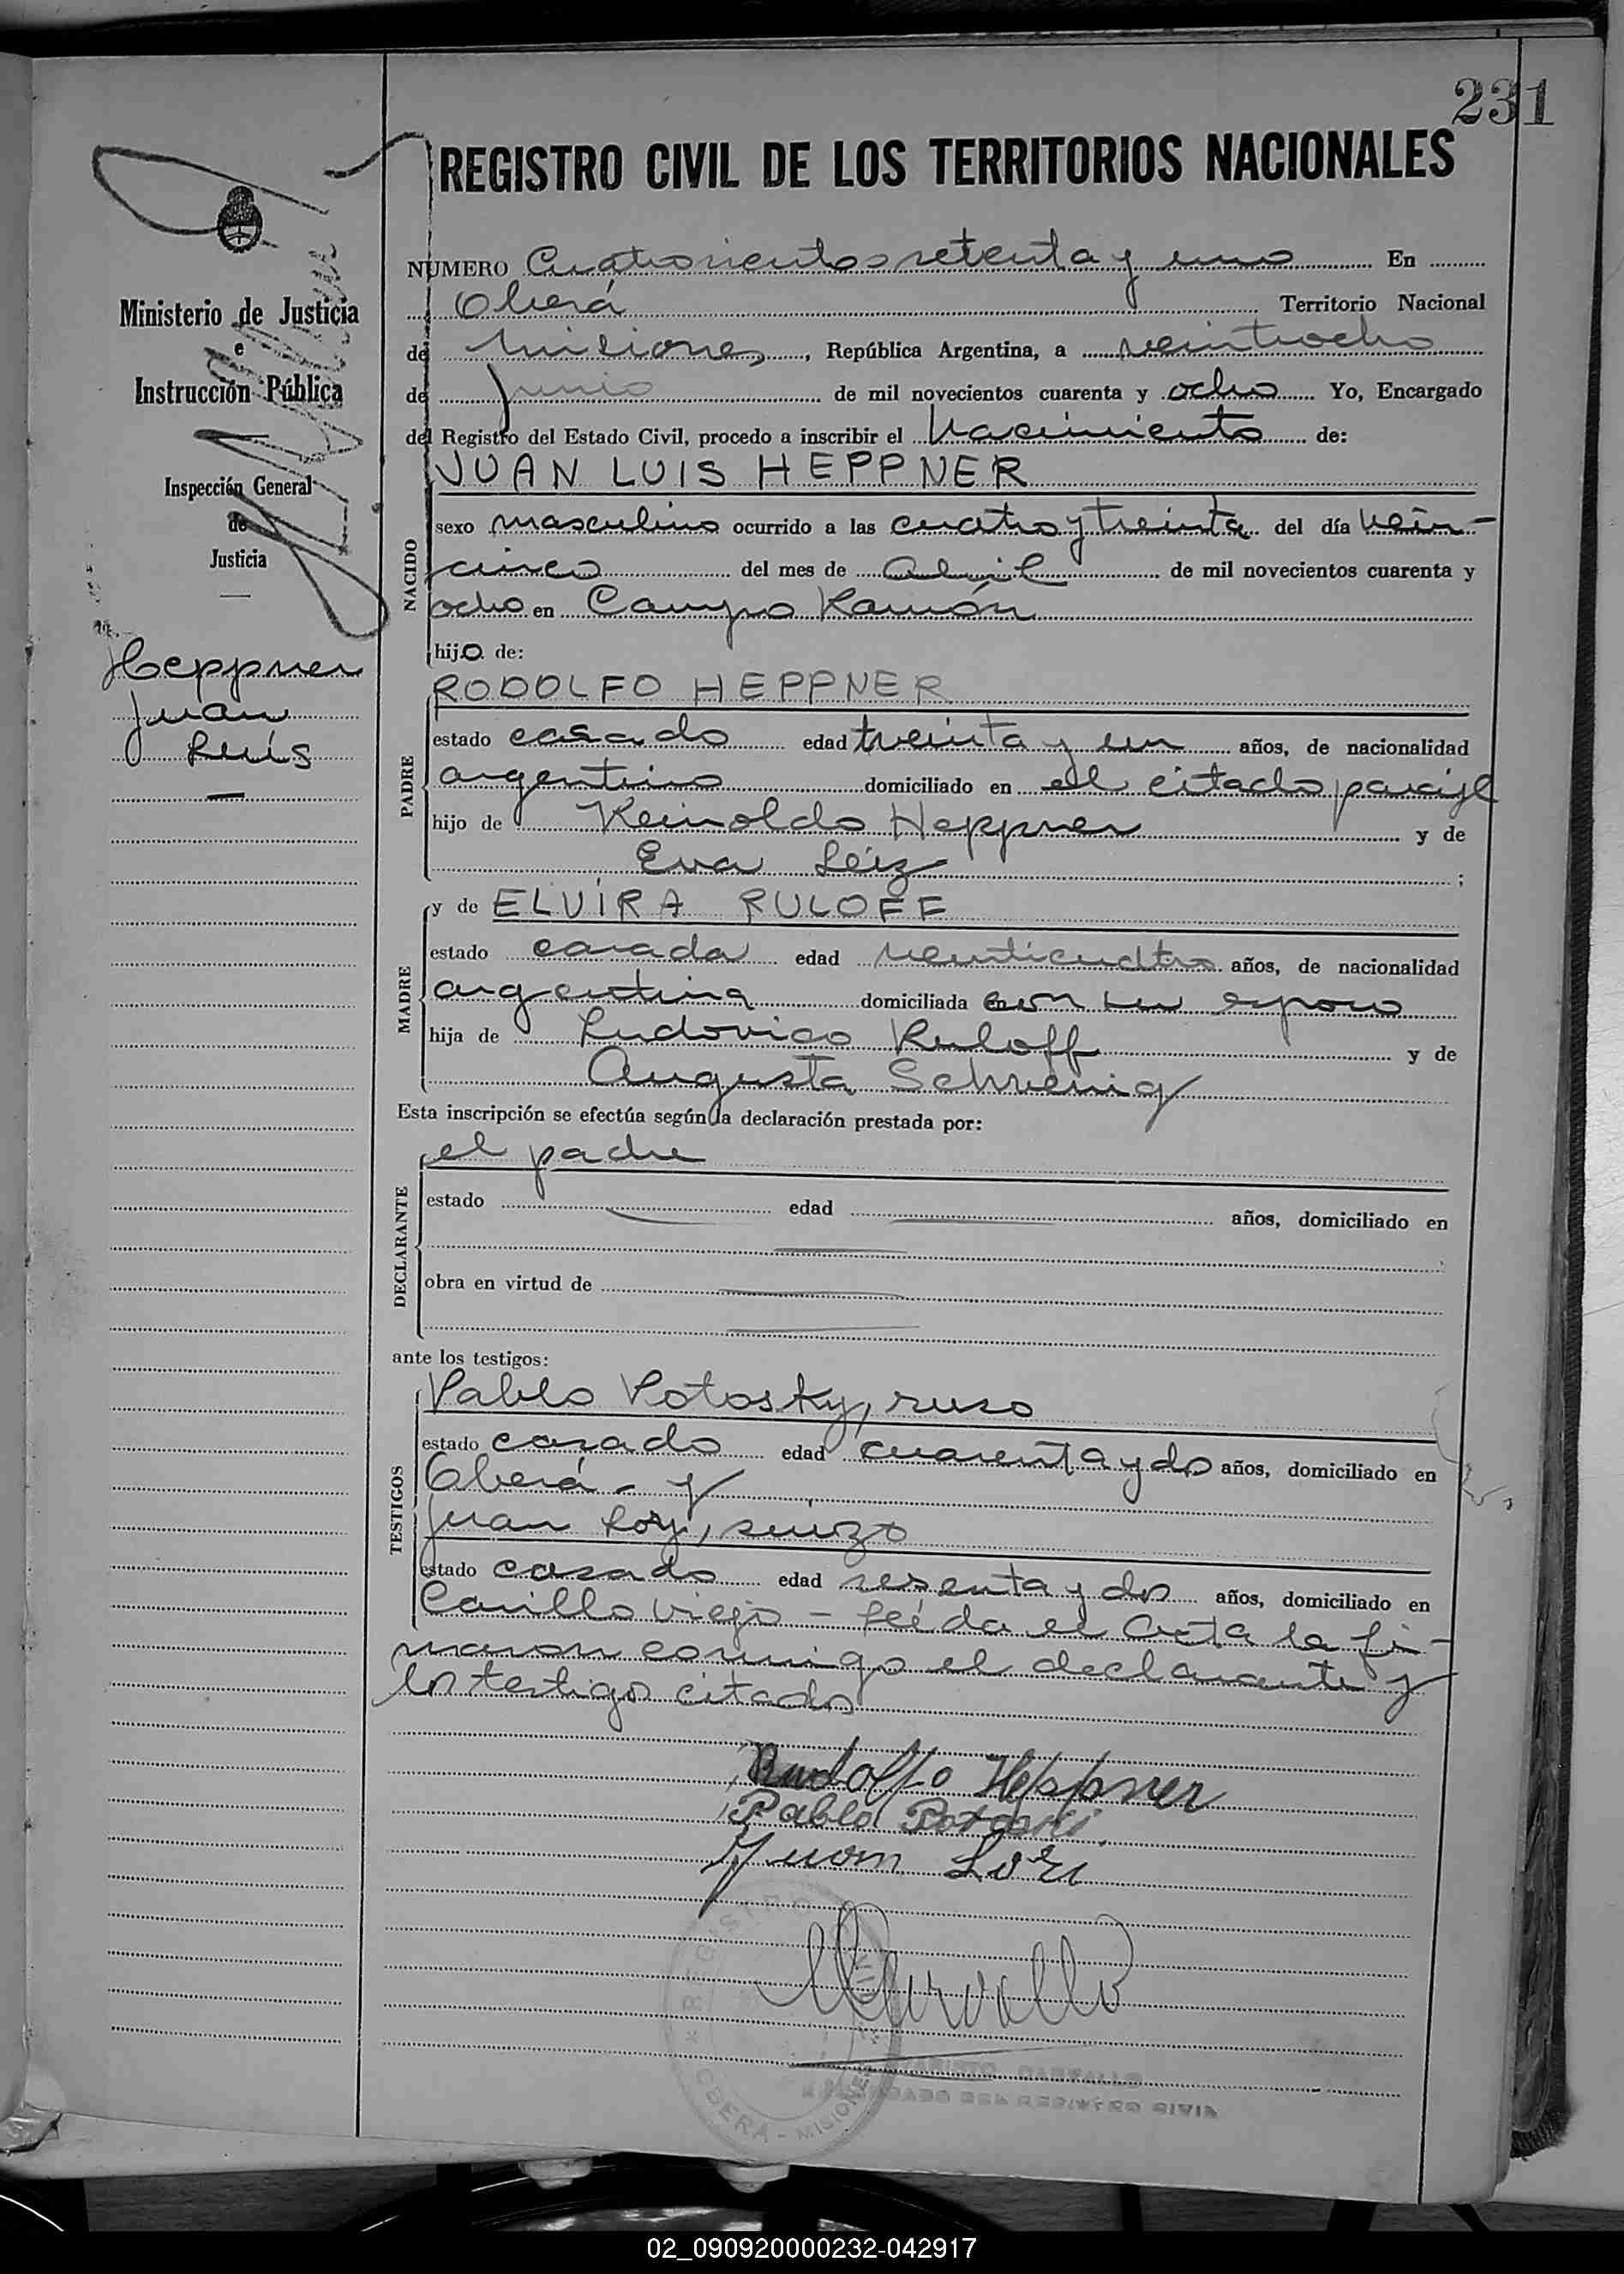 231
REGISTRO CIVIL DE LOS TERRITORIOS NACIONALES
NUMERO Cuatrocientos setenta y uno En
Oberá Territorio Nacional
de Misiones, República Argentina, a veintiocho
de Junio de mil novecientos cuarenta y ocho Yo, Encargado
del Registro del Estado Civil, procedo a inscribir el Nacimiento de:
Ministerio de Justicia
e
Instrucción Pública
Inspección General
de
Justicia
Heppner
Juan
Luis
NACIDO
JUAN LUIS HEPPNER
sexo masculino ocurrido a las cuatro y treinta del día vein-
cinco del mes de Abril de mil novecientos cuarenta y
ocho en Campo Ramón
hijo de:
PADRE
RODOLFO HEPPNER
estado casado edad treinta y un años, de nacionalidad
argentino domiciliado en el citado paraje
hijo de Reinoldo Heppner y de
Eva Leiz ;
MADRE
y de ELVIRA RULOFF
estado casada edad veinticuatro años, de nacionalidad
argentina domiciliada con su esposo
hija de Ludovico Ruloff y de
Augusta
Esta inscripción se efectúa según la declaración prestada por:
DECLARANTE
el padre
estado edad años, domiciliado en
obra en virtud de
ante los testigos:
TESTIGOS
Pablo Potosky, ruso
estado casado edad cuarenta y dos años, domiciliado en
Oberá - y
Juan Lory, suizo
estado casado edad sesenta y dos años, domiciliado en
viejo - Leída el Acta la fir-
maron conmigo el declarante y
los testigos citados
Rudolfo Heppner
Pablo Potoski
Juan Lori
OBERÁ - MISIONES
02_090920000232-042917